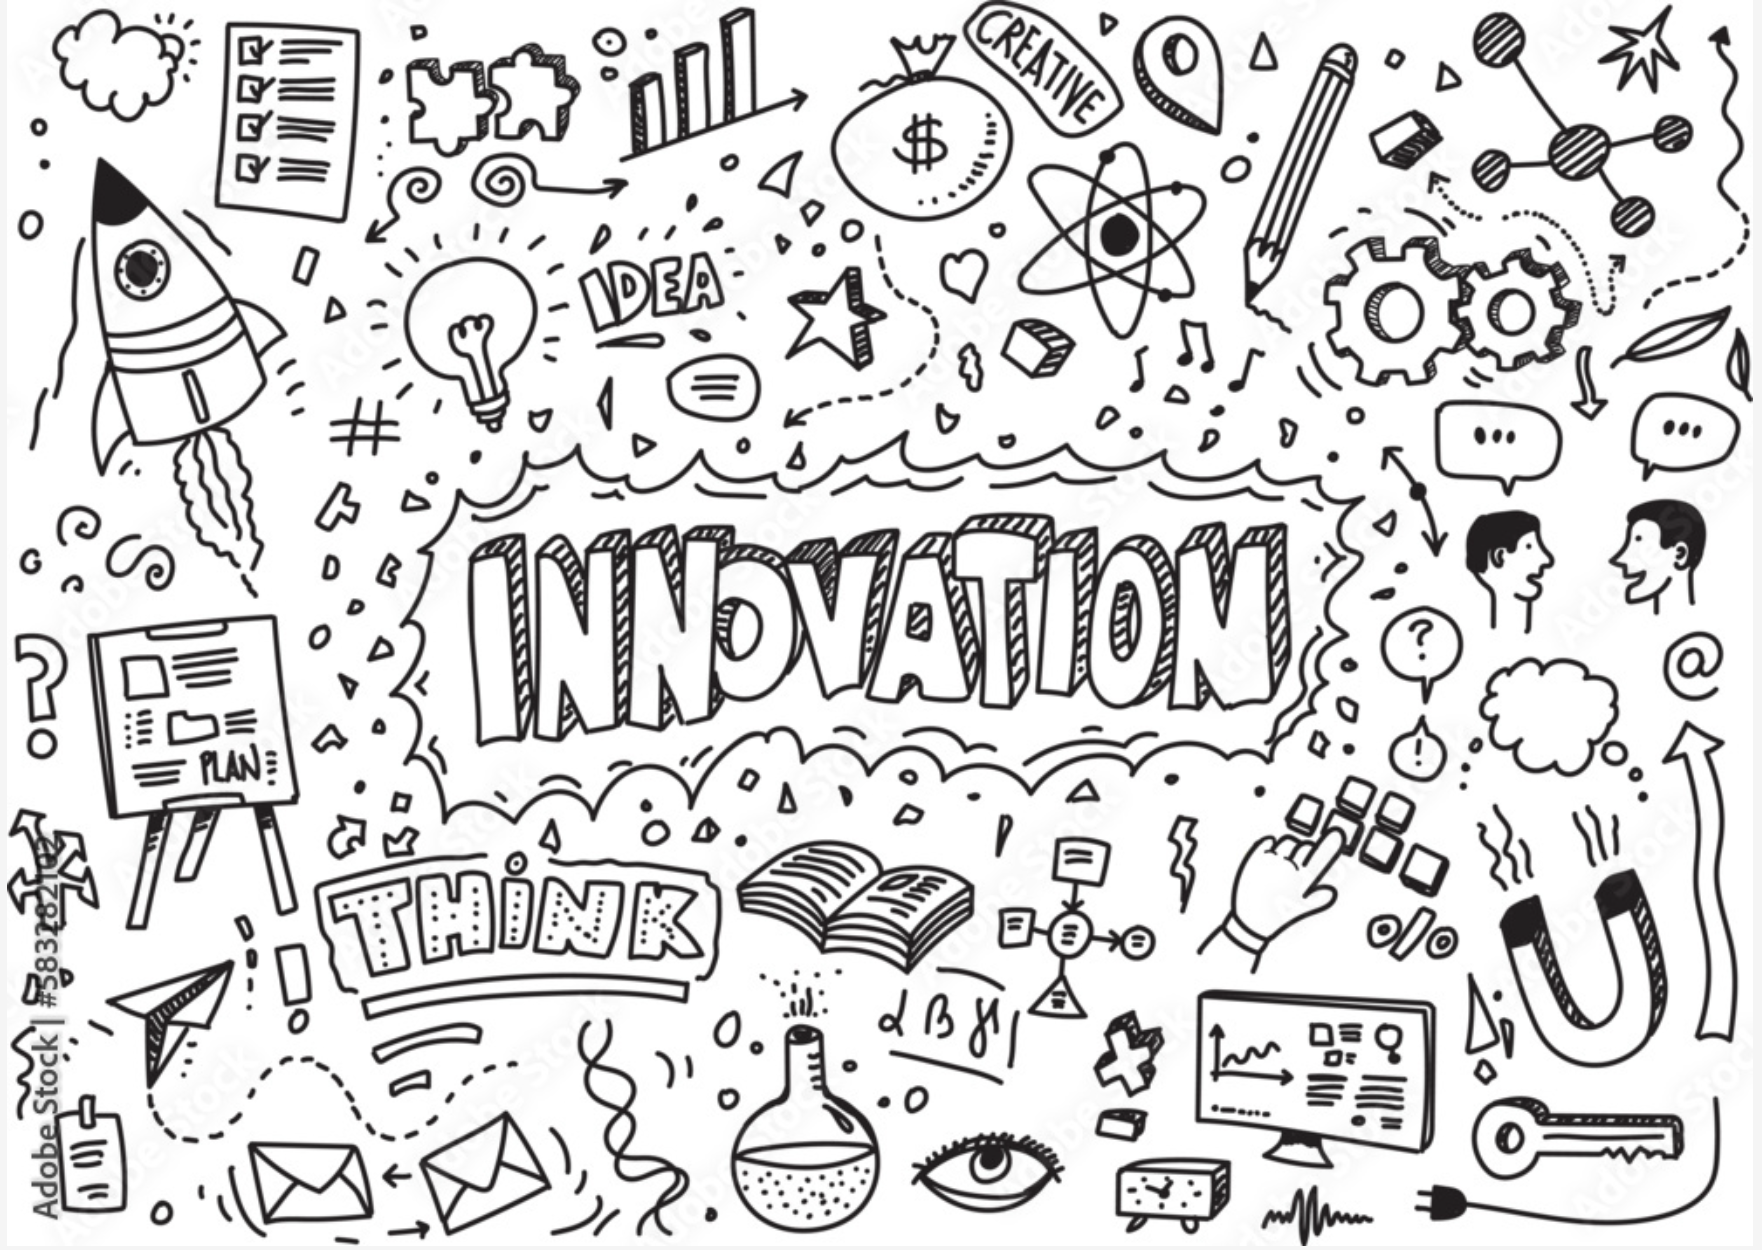 CREATIVE
$
IDEA
#
INNOVATION
?
@
!
?
PLAN
THiNK
%
!
Adobe Stock | #583282102